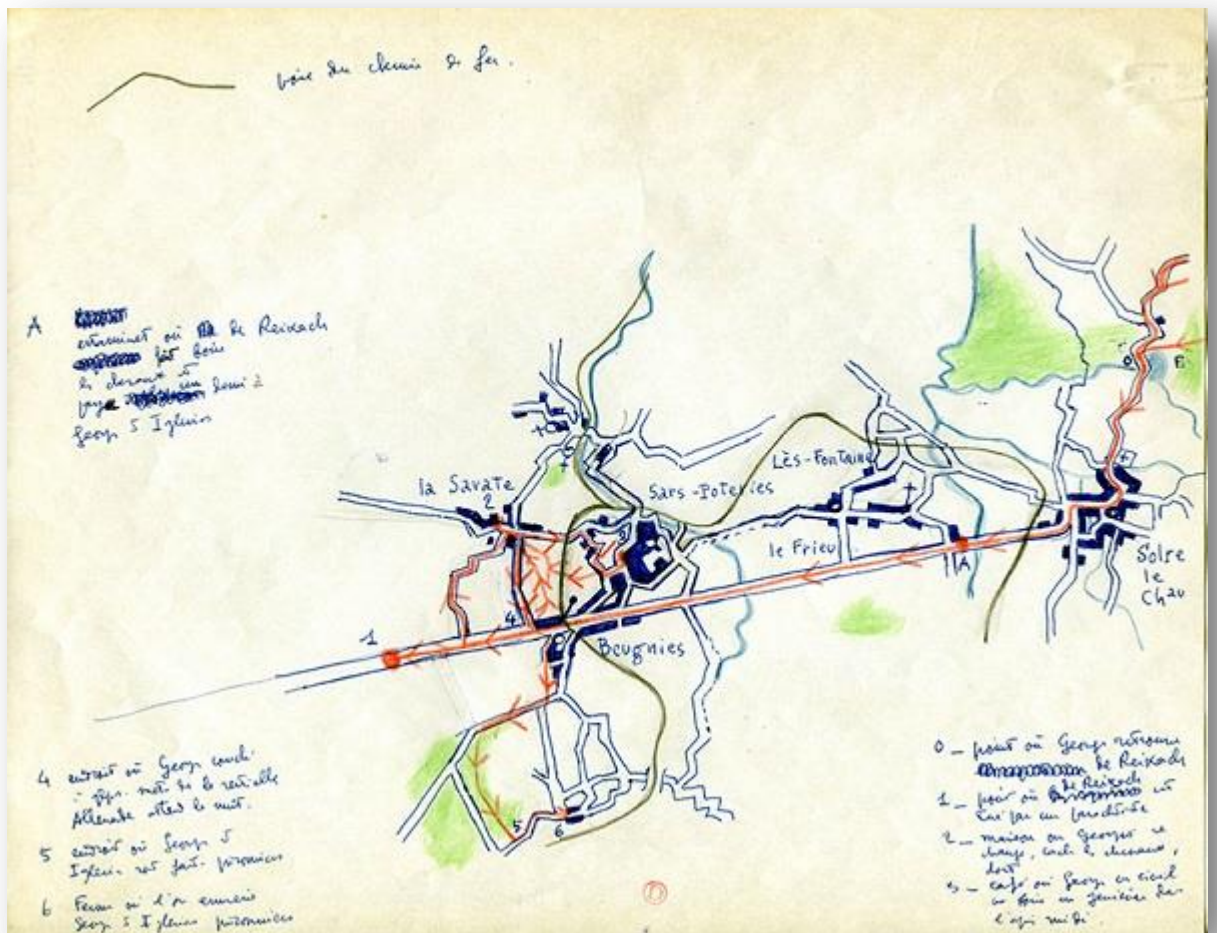 voie du chemin de fer.
A
estaminet où de Reixach
fait boire
les chevaux et
paye un demi à
Georges & Iglésia
la Savate
2
Sars-Poteries
Lès-Fontaine
le Frieu
A
Solre
le
Chau
O
E
1
4
Beugnies
5
6
4 endroit où Georges couché
attend la nuit.
5 endroit où Georges &
Iglésia sont faits prisonniers
6 Ferme où l'on emmène
Georges & Iglésia prisonniers
0 - point où Georges retrouve
de Reixach
1 - point où de Reixach est
tué par un parachutiste
2 - maison où Georges se
change, cache les chevaux,
dort
3 - café où Georges
l'après midi.